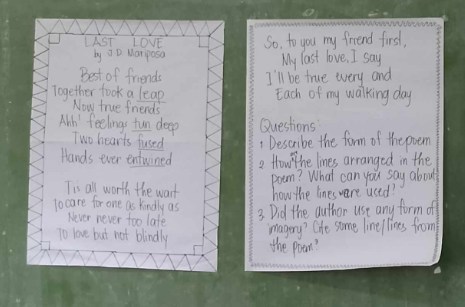 LAST LOVE
by J.D. Mariposa
Best of friends
Together took a leap
Now true friends
Ahh! feelings tun deep
Two hearts fused
Hands ever entwined
Tis all worth the wait
To care for one as kindly as
Never never too late
To love but not blindly
So, to you my friend first,
My last love, I say
I'll be true wery and
Each of my walking day
Questions:
1 Describe the form of the poem
2 How are the lines arranged in the
poem? What can you say about
how the lines were used?
3 Did the author use any form of
imagery? Cite some line/lines from
the poem?